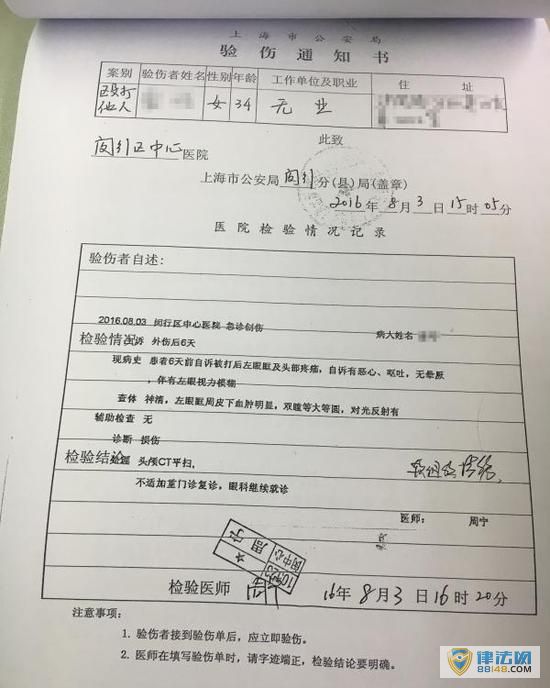 上海市公安局
验伤通知书
案别 验伤者姓名 性别 年龄 工作单位及职业 住址
殴打他人 女 34 无业
此致
闵行区中心医院
上海市公安局闵行分(县)局(盖章)
2016年8月3日15时05分
医院检验情况记录
验伤者自述:
2016.08.03 闵行区中心医院 急诊创伤 病人姓名
检验情况 主诉 外伤后6天
现病史 患者6天前自诉被打后左眼眶及头部疼痛,自诉有恶心、呕吐,无晕厥
,伴有左眼视力模糊
查体 神清,左眼眶周皮下血肿明显,双瞳等大等圆,对光反射有
辅助检查 无
诊断 损伤
检验结论 处理 头颅CT平扫,
软组织挫伤
不适加重门诊复诊,眼科继续就诊
医师: 周宁
周宁
闵中心
检验医师
16年8月3日16时20分
注意事项:
1. 验伤者接到验伤单后,应立即验伤。
2. 医师在填写验伤单时,请字迹端正,检验结论要明确。
律法网
88148.com